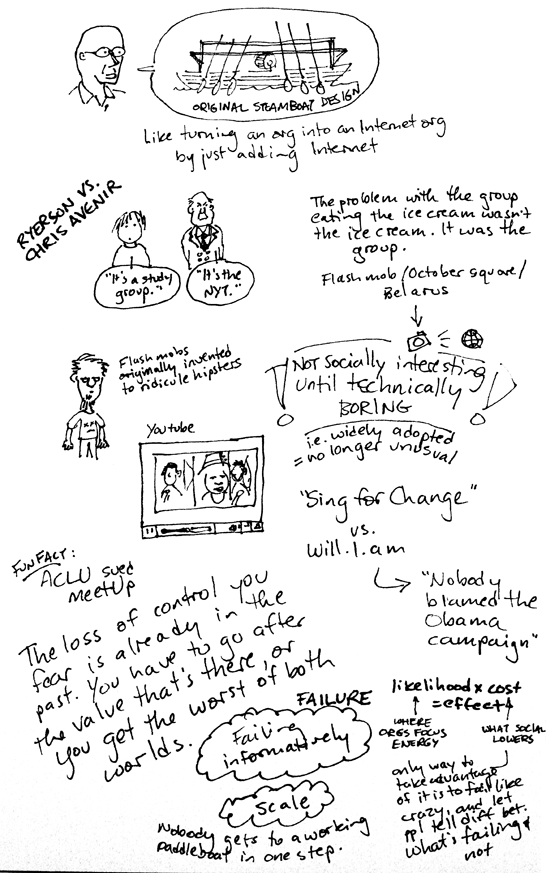 ORIGINAL STEAMBOAT DESIGN
Like turning an org into an Internet org
by just adding Internet
RYERSON VS.
CHRIS AVENIR
"It's a study
group."
"It's the
NYT."
The problem with the group
eating the ice cream wasn't
the ice cream. It was the
group.
Flash mob/October square/
Belarus
Flash mobs
originally invented
to ridicule hipsters
NOT socially interesting
until technically
BORING
i.e. widely adopted
= no longer unusual
Youtube
"Sing for Change"
vs.
Will.I.am
"Nobody
blamed the
Obama
campaign"
FUN FACT:
ACLU sued
meetUp
The loss of control you
fear is already in the
past. You have to go after
the value that's there, or
you get the worst of both
worlds.
FAILURE
Failing
informatively
scale
Nobody gets to a working
paddleboat in one step.
likelihood x cost
= effect
WHERE
ORGS FOCUS
ENERGY
WHAT SOCIAL
LOWERS
only way to
take advantage
of it is to fail like
crazy, and let
ppl tell diff bet.
what's failing &
not